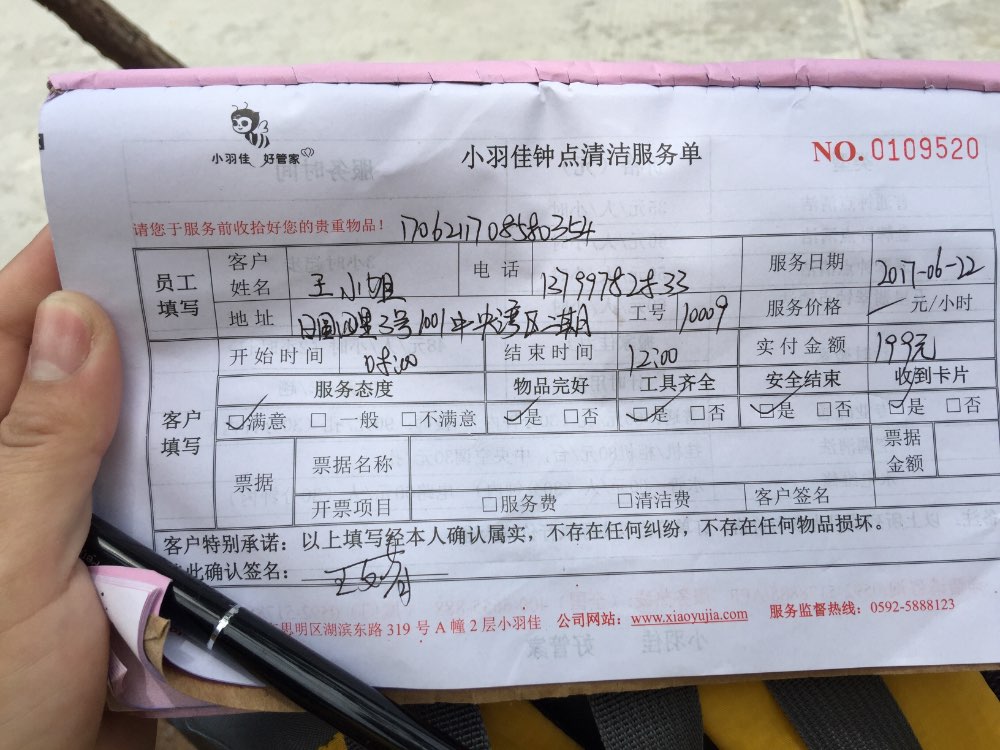 小羽佳 好管家
小羽佳钟点清洁服务单
NO. 0109520
请您于服务前收拾好您的贵重物品！ 170621708580354
员工填写 客户姓名 王小姐 电话 13799782833 服务日期 2017-06-22
地址 3号1001中央湾区 工号 10009 服务价格 元/小时
客户填写 开始时间 08:00 结束时间 12:00 实付金额 199元
服务态度 物品完好 工具齐全 安全结束 收到卡片
☑满意 □一般 □不满意 ☑是 □否 ☑是 □否 ☑是 □否 ☑是 □否
票据 票据名称 票据金额
开票项目 □服务费 □清洁费 客户签名
客户特别承诺：以上填写经本人确认属实，不存在任何纠纷，不存在任何物品损坏。
此确认签名：
思明区湖滨东路 319 号 A 幢 2 层小羽佳 公司网站：www.xiaoyujia.com 服务监督热线：0592-5888123